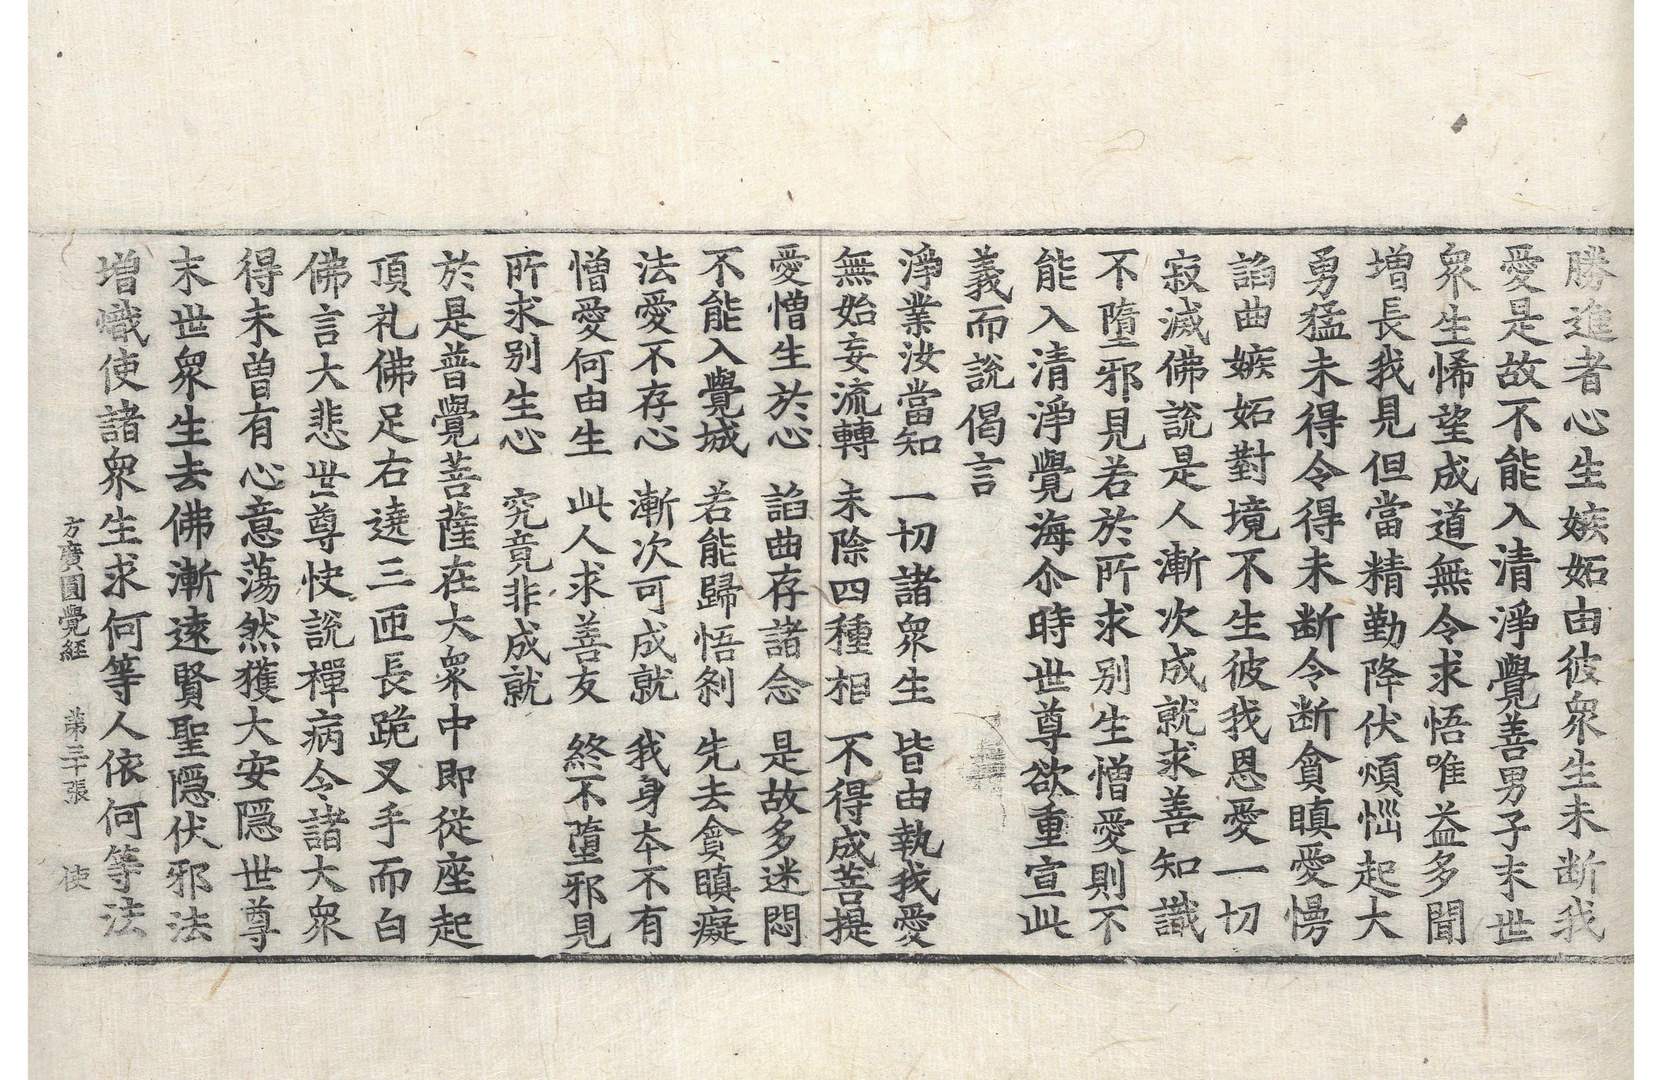 勝進者心生嫉妬由彼衆生未断我
愛是故不能入清淨覺善男子末世
衆生悕望成道無令求悟唯益多聞
增長我見但當精勤降伏煩惱起大
勇猛未得令得未断令断貪瞋愛慢
諂曲嫉妬對境不生彼我恩愛一切
寂滅佛說是人漸次成就求善知識
不墮邪見若於所求別生憎愛則不
能入清淨覺海尒時世尊欲重宣此
義而說偈言
淨業汝當知　一切諸衆生　皆由執我愛
無始妄流轉　未除四種相　不得成菩提
愛憎生於心　諂曲存諸念　是故多迷悶
不能入覺城　若能歸悟刹　先去貪瞋癡
法愛不存心　漸次可成就　我身本不有
憎愛何由生　此人求善友　終不墮邪見
所求別生心　究竟非成就
於是普覺菩薩在大衆中即從座起
頂礼佛足右遶三匝長跪叉手而白
佛言大悲世尊快說禪病令諸大衆
得未曾有心意蕩然獲大安隱世尊
末世衆生去佛漸遠賢聖隱伏邪法
增熾使諸衆生求何等人依何等法
方廣圓覺経　第三十張　使